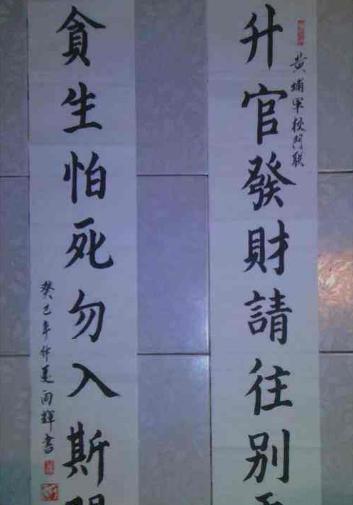 升官發財請往別
黄埔軍校門联
貪生怕死勿入斯
癸巳年仲夏向輝書